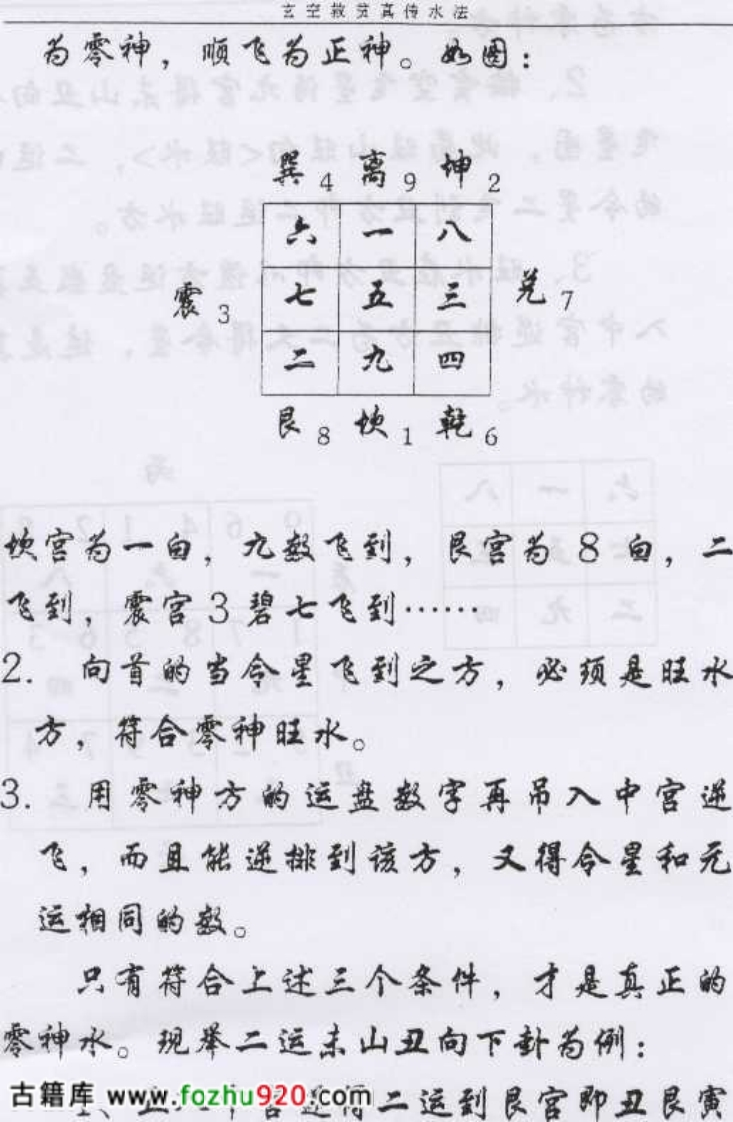 玄空救贫真传水法
为零神，顺飞为正神。如图：
巽4 离9 坤2
六 一 八
震3 七 五 三 兑7
二 九 四
艮8 坎1 乾6
坎宫为一白，九数飞到，艮宫为8白，二
飞到，震宫3碧七飞到……
2. 向首的当令星飞到之方，必须是旺水
方，符合零神旺水。
3. 用零神方的运盘数字再吊入中宫逆
飞，而且能逆排到该方，又得令星和元
运相同的数。
只有符合上述三个条件，才是真正的
零神水。现举二运未山丑向下卦为例：
二运到艮宫即丑艮寅
古籍库 www.fozhu920.com